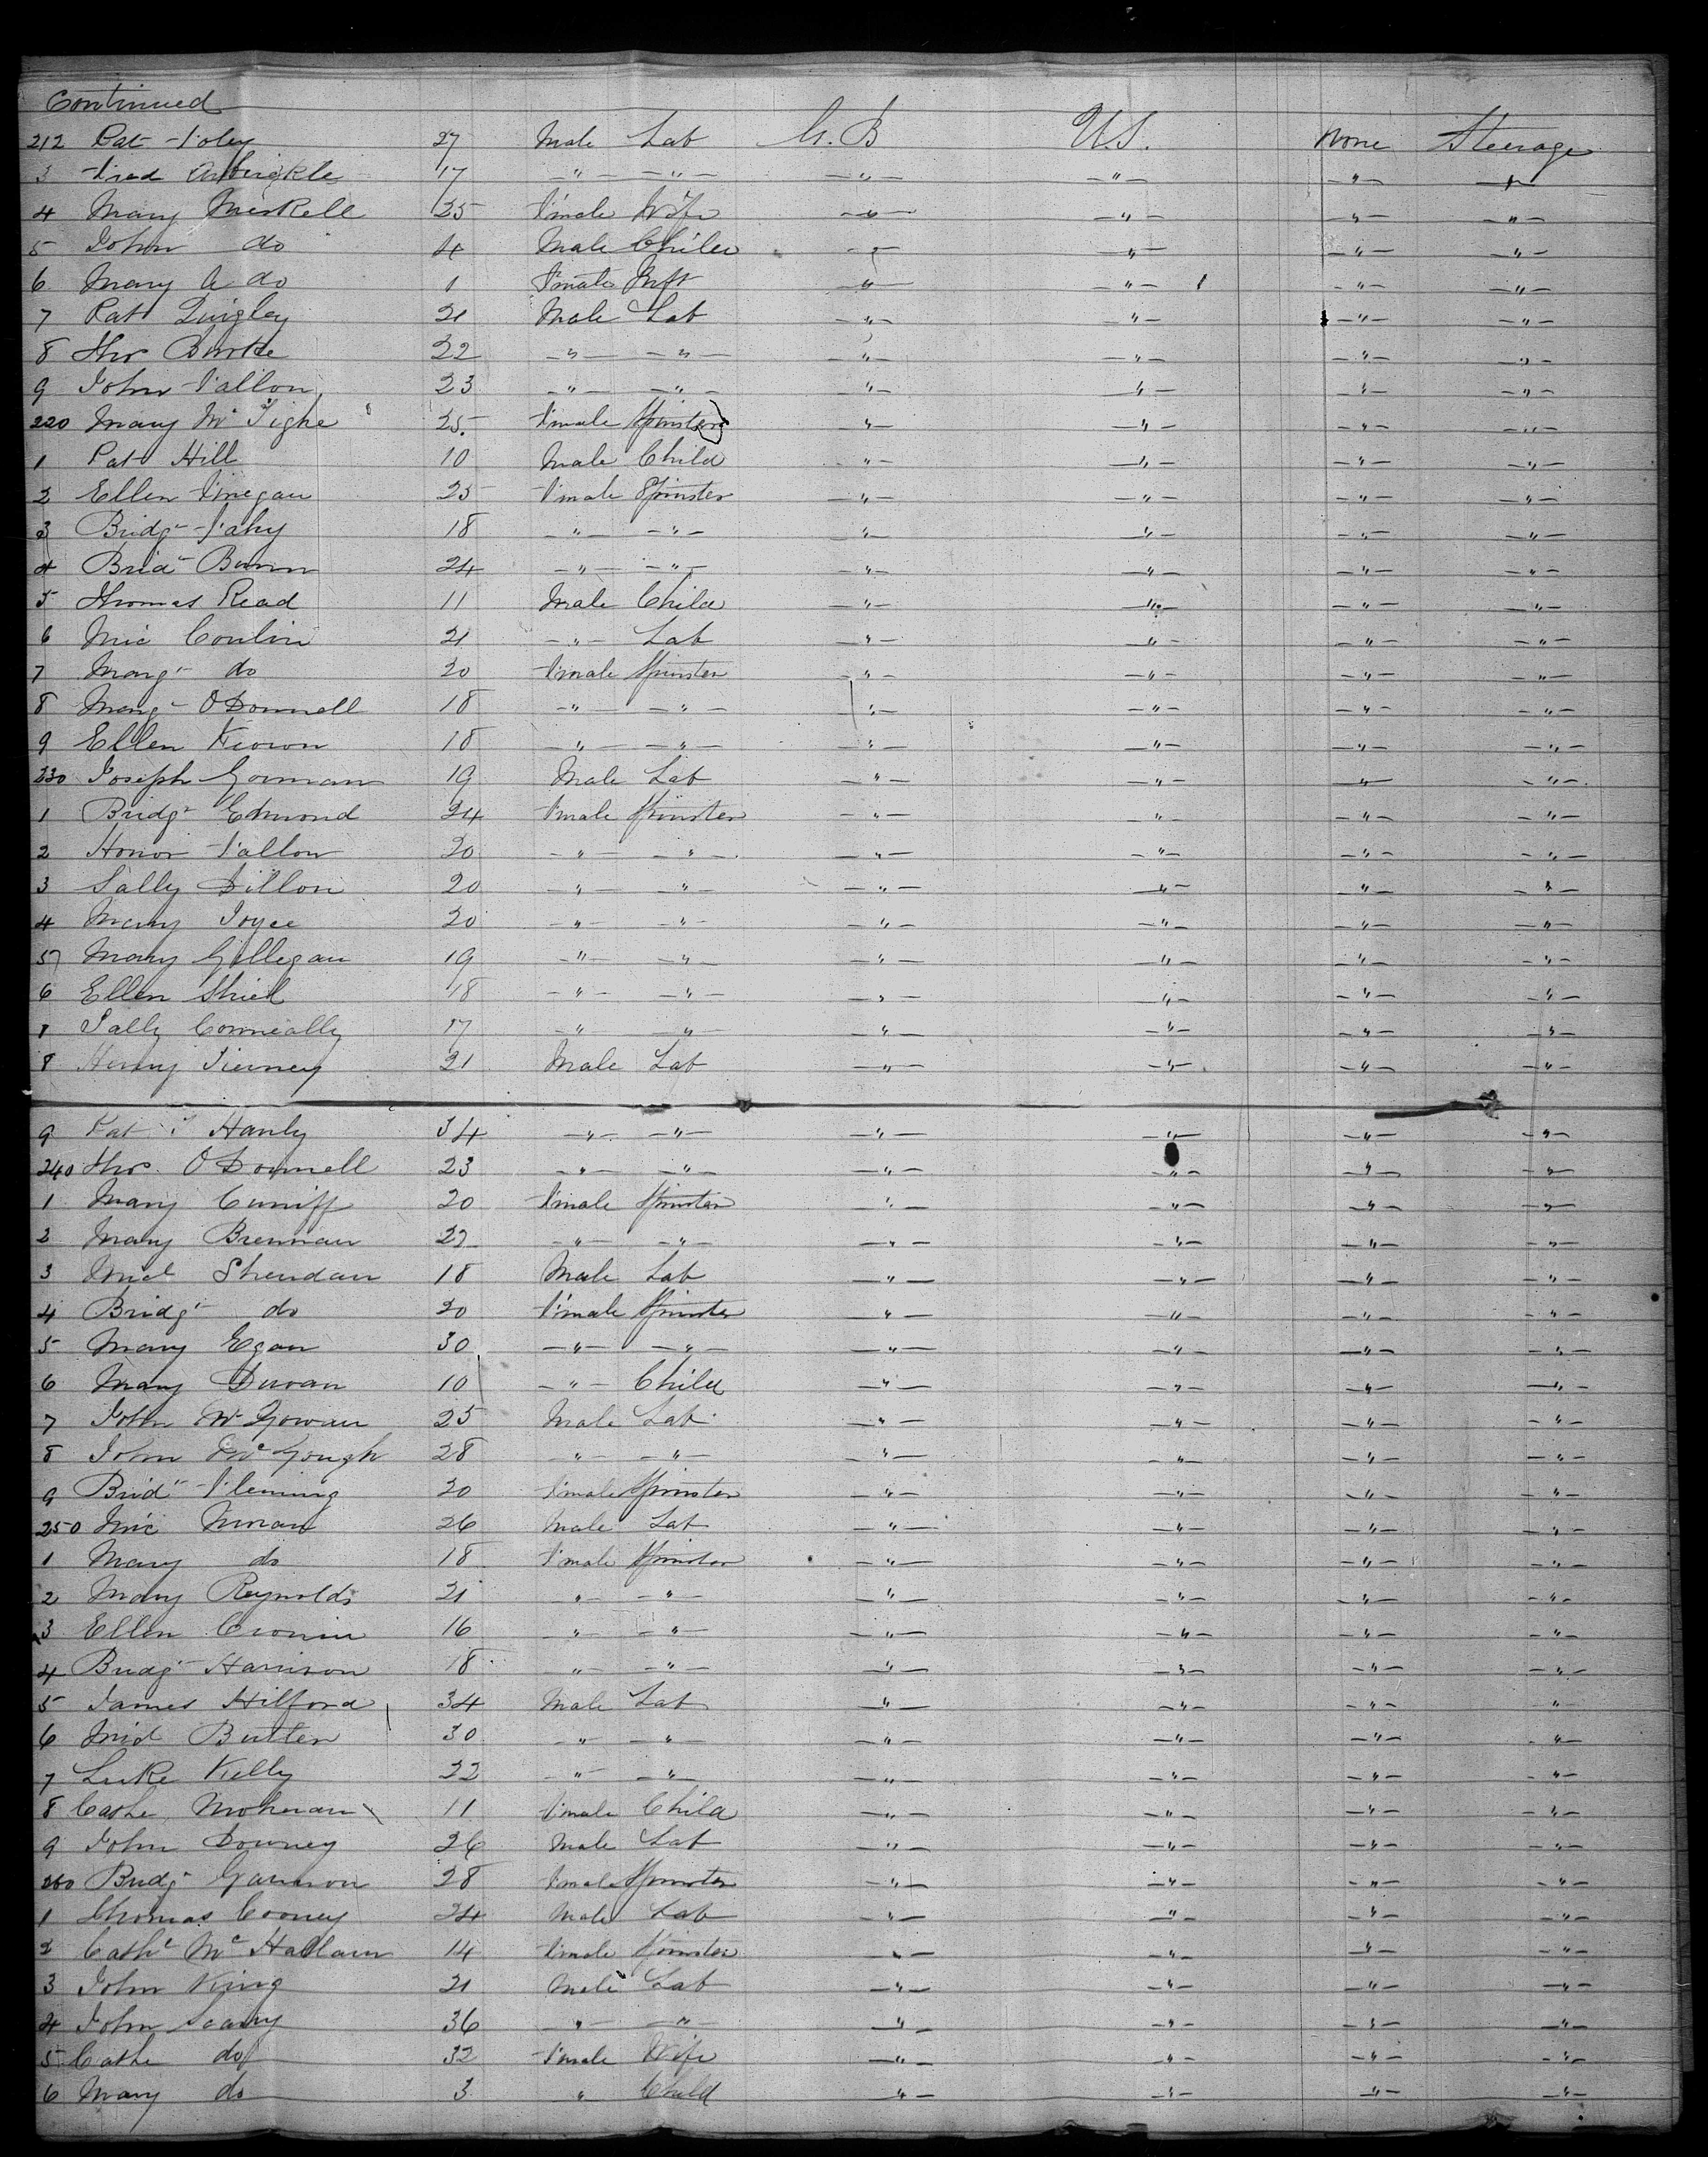 Continued
212 Pat Foley 27 Male Lab G. B U.S. None Steerage
3 Fred Arbuckle 17 —"— —"— —"— —"— —"— —"—
4 Mary Meskell 25 Female Wife —"— —"— —"— —"—
5 John do 4 Male Child —"— —"— —"— —"—
6 Mary A do 1 Female Inft —"— —"— —"— —"—
7 Pat Quigley 21 Male Lab —"— —"— —"— —"—
8 Thos Burke 22 —"— —"— —"— —"— —"— —"—
9 John Fallon 23 —"— —"— —"— —"— —"— —"—
220 Mary McTighe 25 Female Spinster —"— —"— —"— —"—
1 Pat Hill 10 Male Child —"— —"— —"— —"—
2 Ellen Finegan 25 Female Spinster —"— —"— —"— —"—
3 Bridgt Fahy 18 —"— —"— —"— —"— —"— —"—
4 Bridt 24 —"— —"— —"— —"— —"— —"—
5 Thomas Read 11 Male Child —"— —"— —"— —"—
6 Mic Conlin 21 —"— Lab —"— —"— —"— —"—
7 Margt do 20 Female Spinster —"— —"— —"— —"—
8 Margt O'Donnell 18 —"— —"— —"— —"— —"— —"—
9 Ellen Keown 18 —"— —"— —"— —"— —"— —"—
230 Joseph Gorman 19 Male Lab —"— —"— —"— —"—
1 Bridgt Edmond 24 Female Spinster —"— —"— —"— —"—
2 Honor Fallon 20 —"— —"— —"— —"— —"— —"—
3 Sally Dillon 20 —"— —"— —"— —"— —"— —"—
4 Mary Joyce 20 —"— —"— —"— —"— —"— —"—
5 Mary Gillegan 19 —"— —"— —"— —"— —"— —"—
6 Ellen Shiel 18 —"— —"— —"— —"— —"— —"—
7 Sally Conneally 17 —"— —"— —"— —"— —"— —"—
8 Henry Tierney 21 Male Lab —"— —"— —"— —"—
9 Pat Hanly 34 —"— —"— —"— —"— —"— —"—
240 Thos. O'Donnell 23 —"— —"— —"— —"— —"— —"—
1 Mary Cuniff 20 Female Spinster —"— —"— —"— —"—
2 Mary Brennan 22 —"— —"— —"— —"— —"— —"—
3 Micl Sheridan 18 Male Lab —"— —"— —"— —"—
4 Bridgt do 20 Female Spinster —"— —"— —"— —"—
5 Mary Egan 30 —"— —"— —"— —"— —"— —"—
6 Mary Duran 10 —"— Child —"— —"— —"— —"—
7 John McGowan 25 Male Lab —"— —"— —"— —"—
8 John McGough 28 —"— —"— —"— —"— —"— —"—
9 Bridt Fleming 20 Female Spinster —"— —"— —"— —"—
250 Mic 26 Male Lab —"— —"— —"— —"—
1 Mary do 18 Female Spinster —"— —"— —"— —"—
2 Mary Reynolds 21 —"— —"— —"— —"— —"— —"—
3 Ellen Cronin 16 —"— —"— —"— —"— —"— —"—
4 Bridgt Harrison 18 —"— —"— —"— —"— —"— —"—
5 James Hilford 34 Male Lab —"— —"— —"— "
6 Micl Butler 30 —"— —"— —"— —"— —"— —"—
7 Luke Kelly 22 —"— —"— —"— —"— —"— —"—
8 Cathe 11 Female Child —"— —"— —"— —"—
9 John Downey 26 Male Lab —"— —"— —"— —"—
260 Bridgt Gannon 28 Female Spinster —"— —"— —"— —"—
1 Thomas Cooney 24 Male Lab —"— —"— —"— —"—
2 Cathe McHallam 14 Female Spinster —"— —"— —"— —"—
3 John King 21 Male Lab —"— —"— —"— —"—
4 John 36 —"— —"— —"— —"— —"— —"—
5 Cathe do 32 Female Wife —"— —"— —"— —"—
6 Mary do 3 " Child —"— —"— —"— —"—